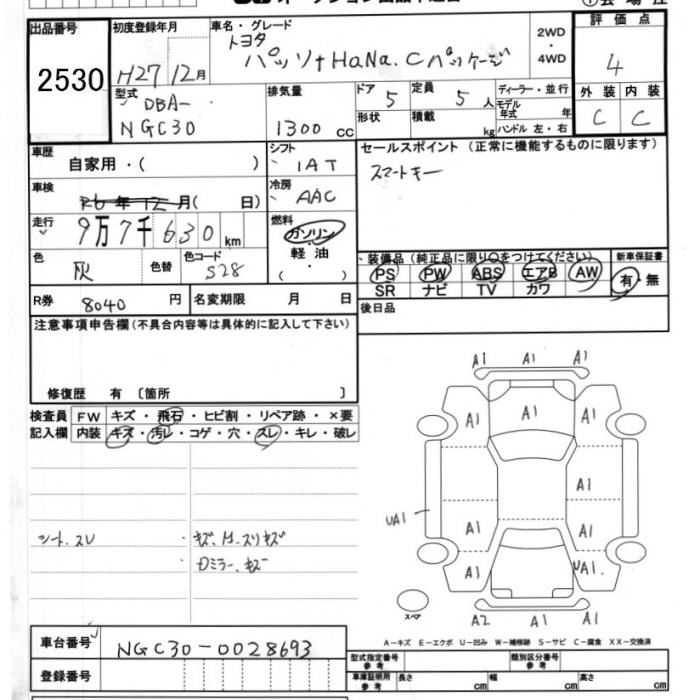 出品番号
2530
初度登録年月
H27 12月
車名・グレード
トヨタ
パッソ+HaNa.Cパッケージ
2WD
・
4WD
評価点
4
外装 内装
C C
型式
DBA-
NGC30
排気量
1300 cc
ドア 5
形状
定員 5 人
積載 kg
ディーラー・並行
モデル年式 年
ハンドル 左・右
車歴
自家用・( )
シフト
IAT
セールスポイント(正常に機能するものに限ります)
スマートキー
車検
R6年12月( 日)
冷房
AAC
走行
9万7千630km
燃料
ガソリン
・
軽油
( )
色
灰
色替
色コード
S28
装備品(純正品に限り○をつけてください)
新車保証書
PS PW ABS エアB AW
有・無
SR ナビ TV カワ
R券 8040 円
名変期限 月 日
後日品
注意事項申告欄(不具合内容等は具体的に記入して下さい)
修復歴 有 〔箇所 〕
検査員 FW キズ・飛石・ヒビ割・リペア跡・×要
記入欄 内装 キズ・汚レ・コゲ・穴・スレ・キレ・破レ
シート、スレ
・キズ、H.スリキズ
Dミラー、キズ
A1 A1 A1
A1 A1 A1
A1
UA1
A1 A1
A1 UA1.
スペア
A2 A1 A1
A-キズ E-エクボ U-凹み W-補修跡 S-サビ C-腐食 XX-交換済
車台番号
NGC30-0028693
登録番号
型式指定番号 参考
類別区分番号 参考
車庫証明用 参考
長さ cm
幅 cm
高さ cm